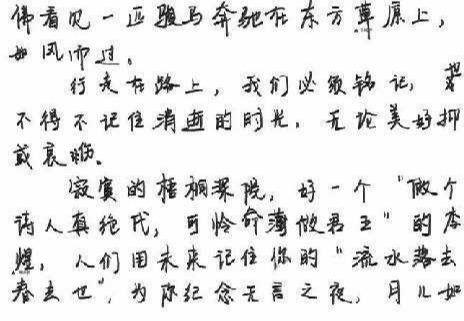 佛看见一匹骏马奔驰在东方草原上，
如风而过。
行走在路上，我们必须铭记，那
不得不记住消逝的时光，无论美好抑
或哀伤。
寂寞的梧桐深院，好一个“做个
诗人真绝代，可怜命薄做君王”的李
煜，人们用未来记住你的“流水落去
春去也”，为你纪念无言之夜，月儿如